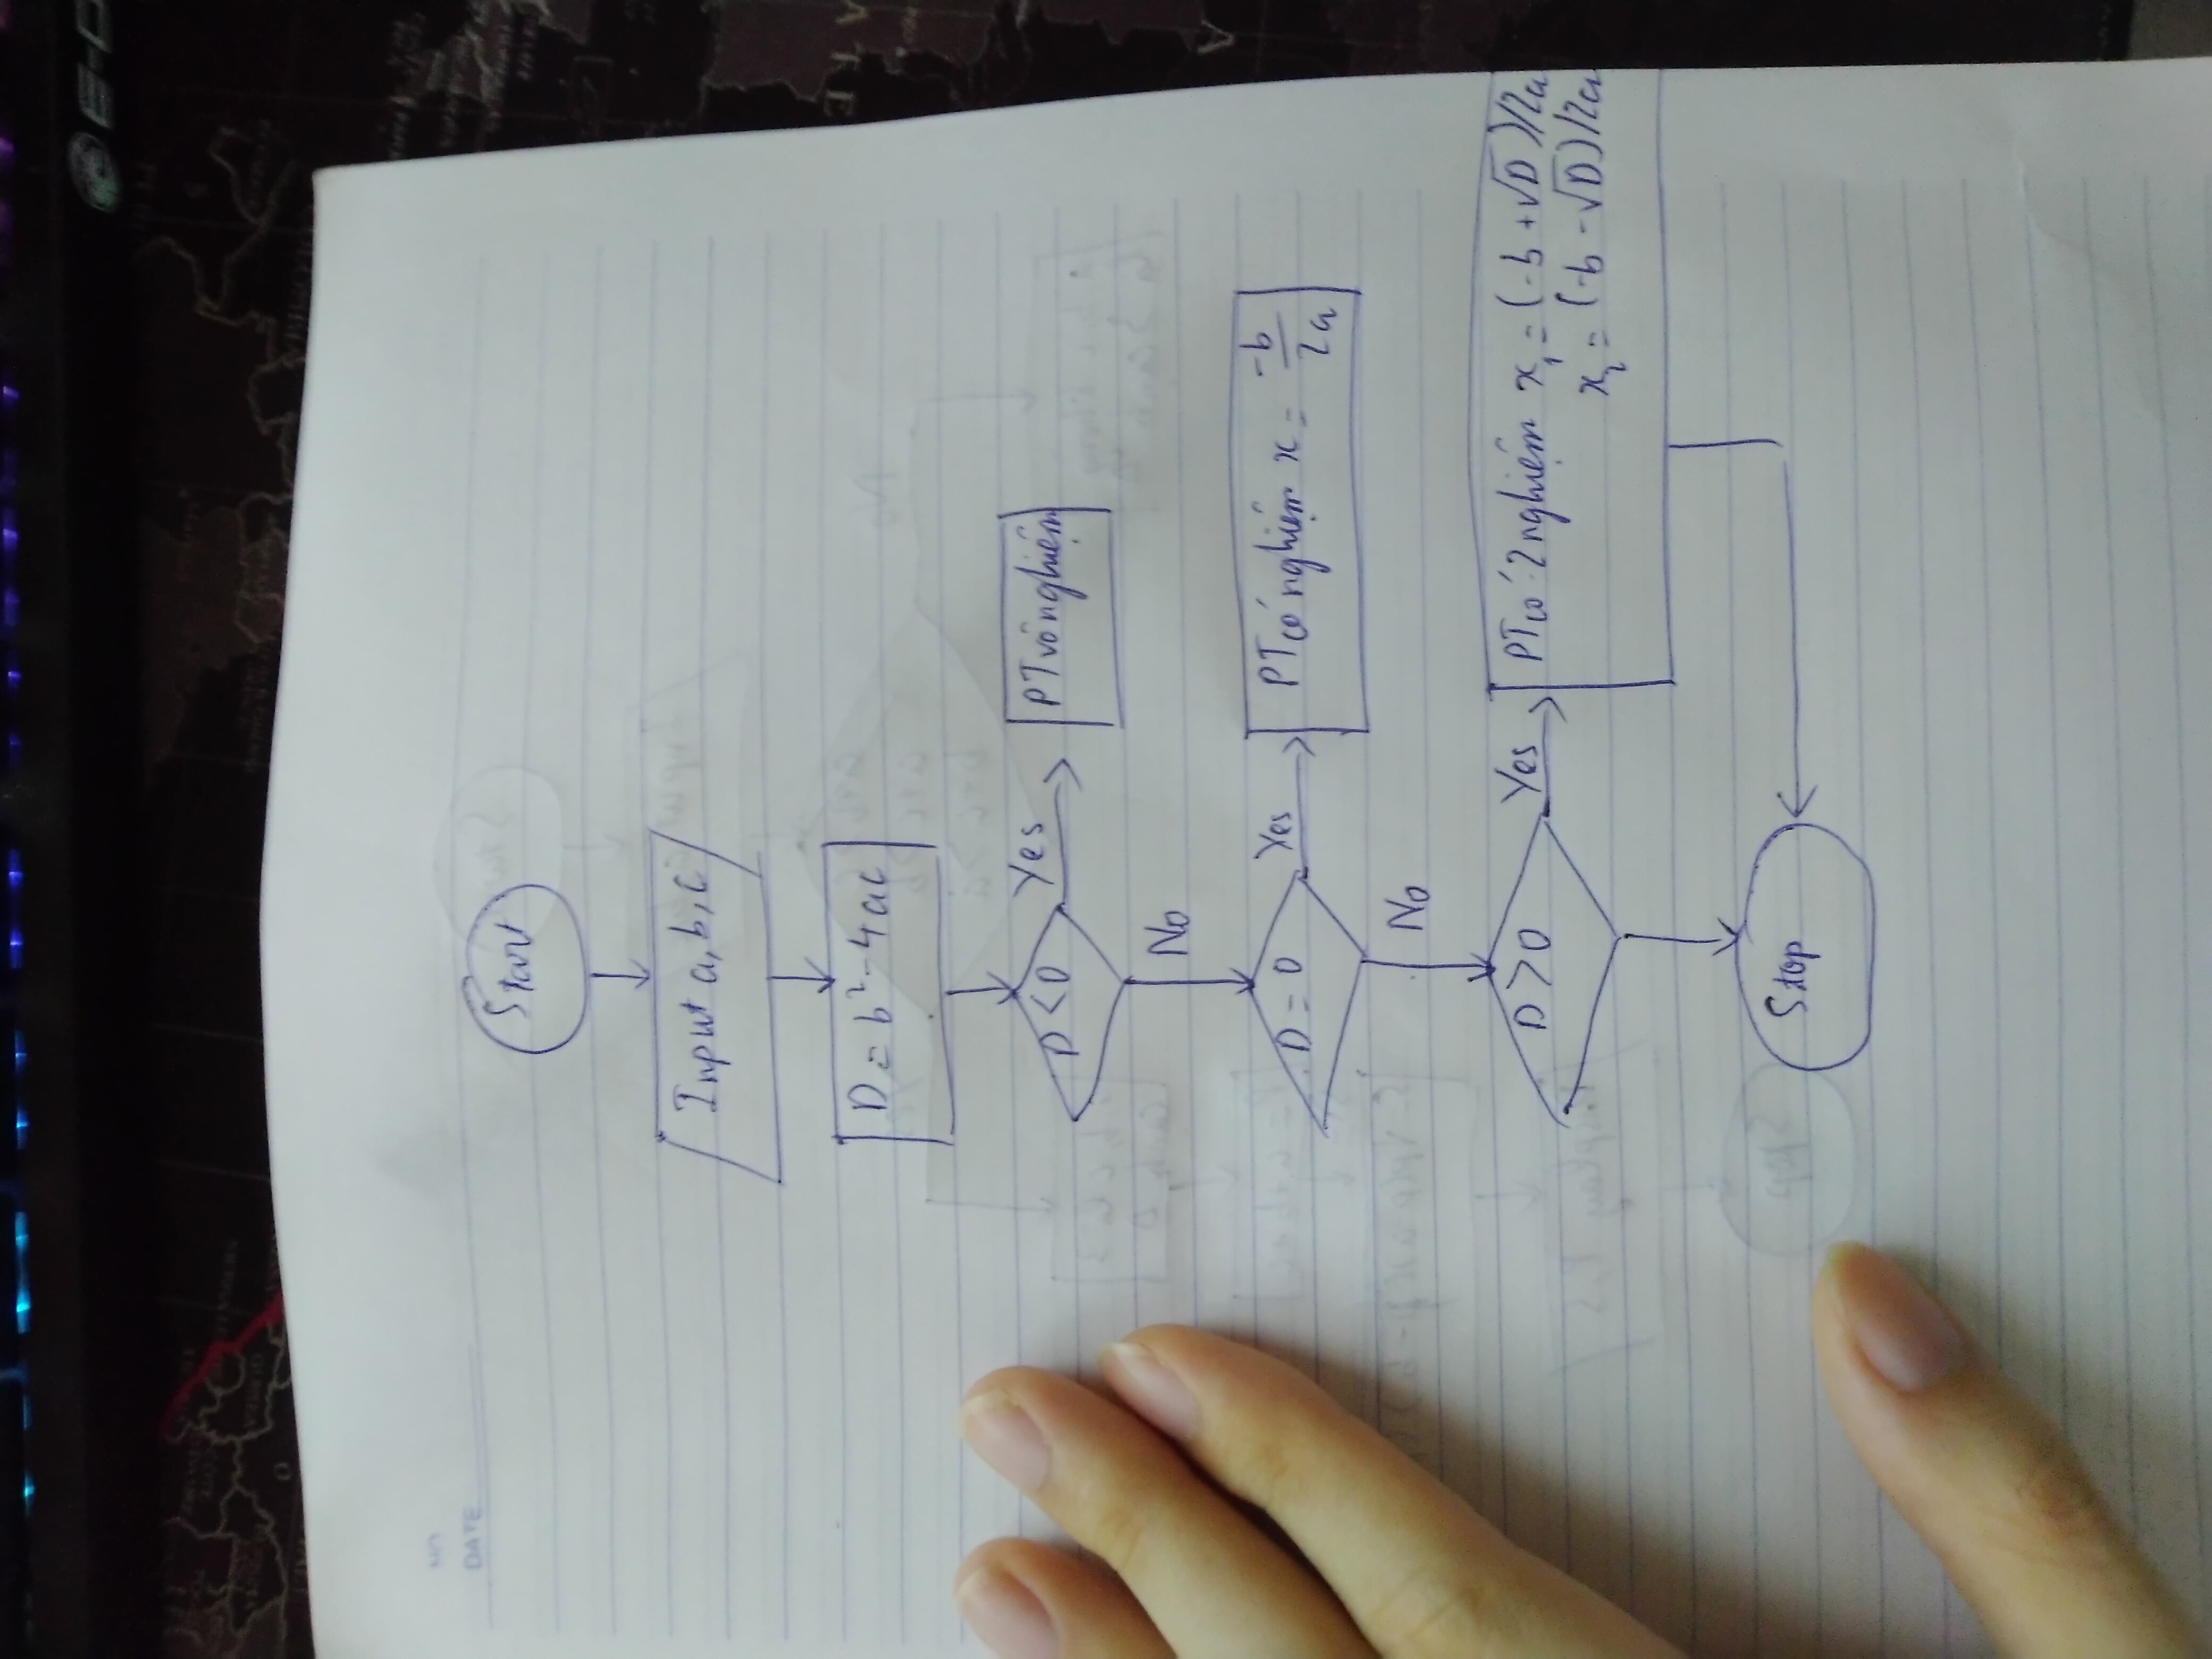 E-D
NO
DATE
Start
Input a, b, c
D = b² - 4ac
D < 0
Yes
PT vô nghiệm
No
D = 0
Yes
PT có nghiệm x = -b/2a
No
D > 0
Yes
PT có 2 nghiệm x₁ = (-b + √D)/2a
x₂ = (-b - √D)/2a
Stop